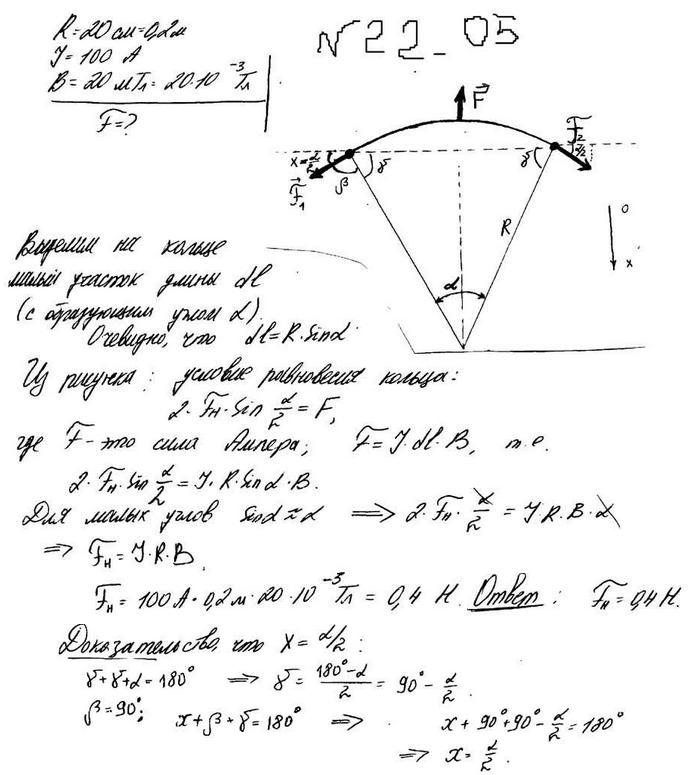 R=20 см=0,2м
J=100 А
B=20 мТл=20·10⁻³Тл
F=?
№22_05
F⃗
F₂
α/2
x=α/2
γ
γ
β
F⃗₁
R
0
x
α
Выделим на кольце
малый участок длины dl
(с образующим углом α).
Очевидно, что dl=R·Sinα
Из рисунка: условие равновесия кольца:
2·Fн·Sin α/2 = F,
где F-это сила Ампера; F=J·dl·B, т.е.
2·Fн·Sin α/2 = J·R·Sinα·B.
Для малых углов Sinα≈α ⟹ 2·Fн·α/2 = J R·B·α
⟹ Fн=J·R·B.
Fн=100А·0,2м·20·10⁻³Тл=0,4 Н. Ответ: Fн=0,4Н.
Доказательство, что x=α/2:
γ+γ+α=180° ⟹ γ=(180°-α)/2=90°-α/2.
β=90°; x+β+γ=180° ⟹ x+90°+90°-α/2=180°
⟹ x=α/2.